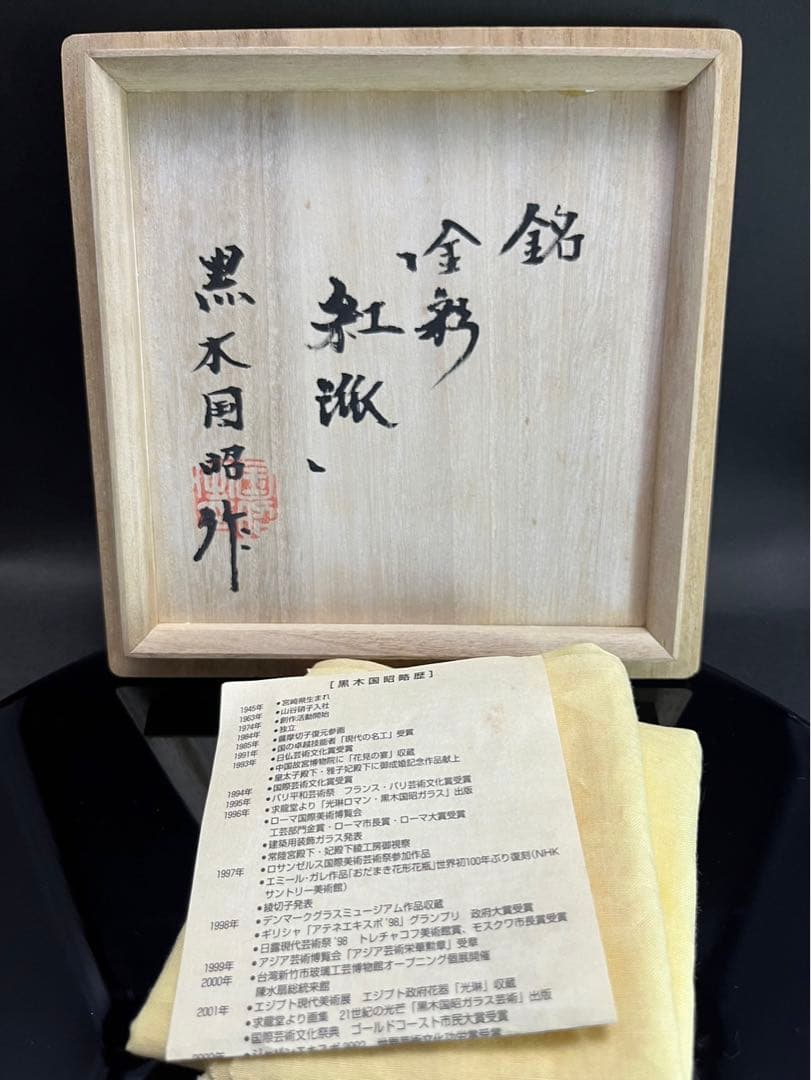 銘
「金彩
紅流」
黒木国昭作
[黒木国昭略歴]
1945年 ●宮崎県生まれ
1963年 ●山谷硝子入社
1974年 ●創作活動開始
1984年 ●独立
1985年 ●薩摩切子復元参画
1991年 ●国の卓越技能者「現代の名工」受賞
1993年 ●日仏芸術文化賞受賞
●中国故宮博物院に「花見の宴」収蔵
●皇太子殿下・雅子妃殿下に御成婚記念作品献上
1994年 ●国際芸術文化賞受賞
1995年 ●パリ平和芸術祭 フランス・パリ芸術文化賞受賞
1996年 ●求龍堂より「光琳ロマン・黒木国昭ガラス」出版
●ローマ国際美術博覧会
工芸部門金賞・ローマ市長賞・ローマ大賞受賞
●建築用装飾ガラス発表
●常陸宮殿下・妃殿下綾工房御視察
1997年 ●ロサンゼルス国際美術芸術祭参加作品
●エミール・ガレ作品「おだまき花形花瓶」世界初100年ぶり復刻(NHK
サントリー美術館)
●綾切子発表
1998年 ●デンマークグラスミュージアム作品収蔵
●ギリシャ「アテネエキスポ'98」グランプリ 政府大賞受賞
●日露現代芸術祭'98 トレチャコフ美術館賞、モスクワ市長賞受賞
1999年 ●アジア芸術博覧会「アジア芸術栄華勲章」受章
2000年 ●台湾新竹市玻璃工芸博物館オープニング個展開催
陳水扁総統来館
2001年 ●エジプト現代美術展 エジプト政府花器「光琳」収蔵
●求龍堂より画集 21世紀の光芒「黒木国昭ガラス芸術」出版
●国際芸術文化祭典 ゴールドコースト市民大賞受賞